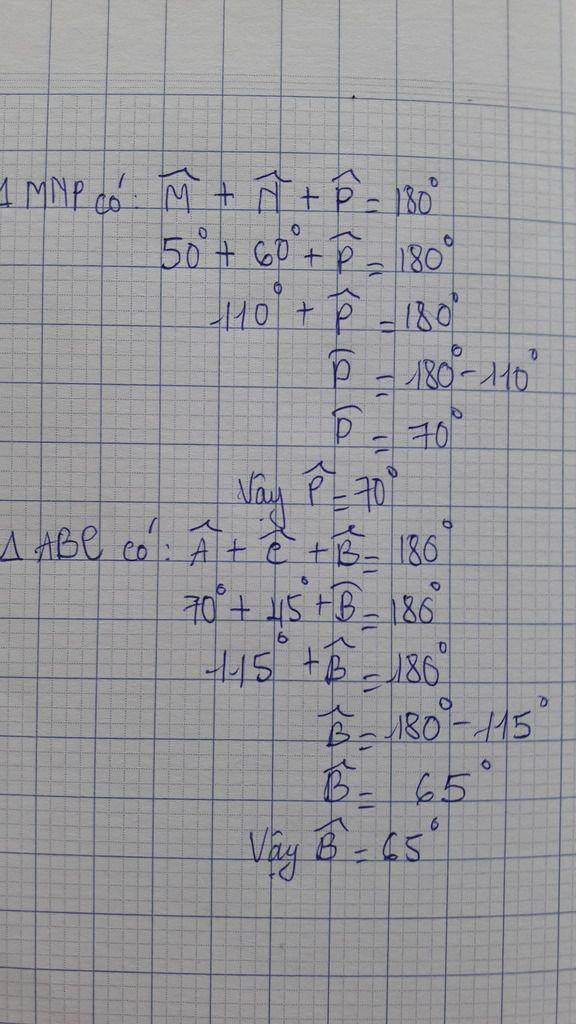 Δ MNP có: M̂ + N̂ + P̂ = 180°
50° + 60° + P̂ = 180°
110° + P̂ = 180°
P̂ = 180° - 110°
P̂ = 70°
Vậy P̂ = 70°
Δ ABC có: Â + Ĉ + B̂ = 180°
70° + 45° + B̂ = 180°
115° + B̂ = 180°
B̂ = 180° - 115°
B̂ = 65°
Vậy B̂ = 65°